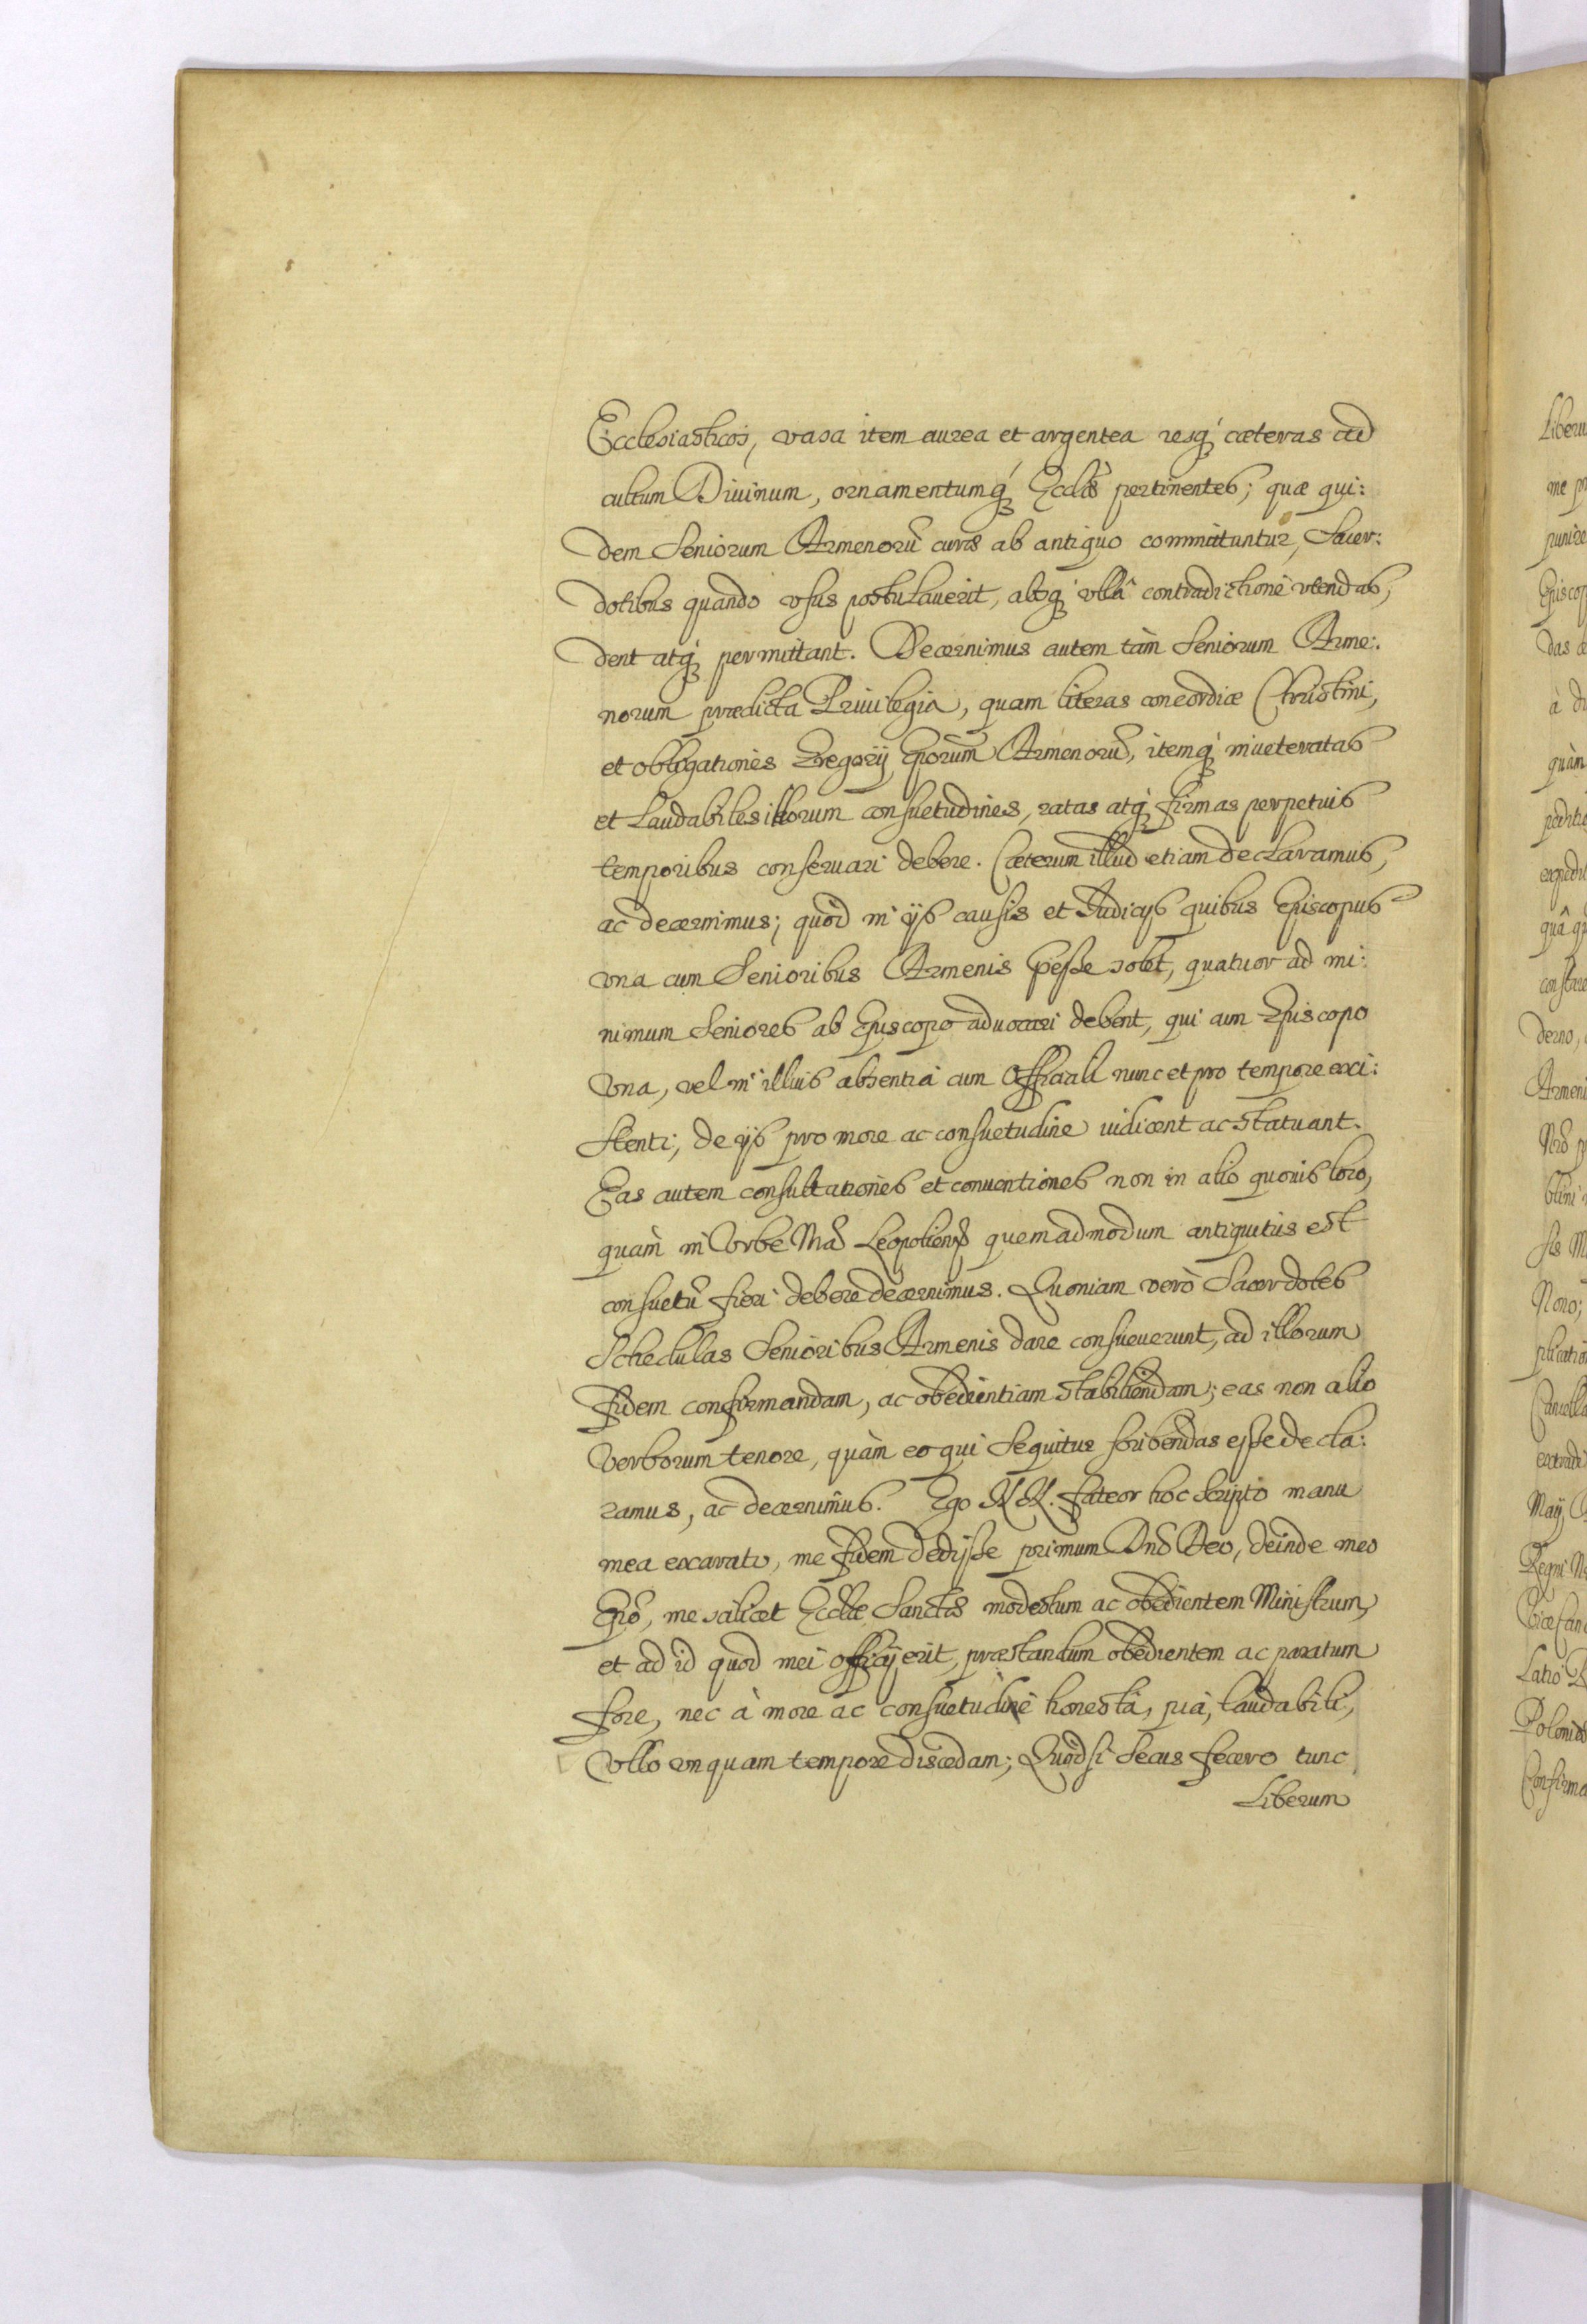 Ecclesiasticos, vasa item aurea et argentea resq́ cæteras ad
cultum Diuinum, ornamentumq́ Eccliæ pertinentes; quæ qui:
dem Seniorum Armenorũ curæ ab antiquo committuntur, Sacer:
dotibus quando vsus postulauerit, absq́ vllâ contradictione vtendas,
dent atq́ permittant. Decernimus autem tàm Seniorum Arme:
norum prædicta Priuilegia, quam literas concordiæ Christini,
et obligationes Gregorij Eporum Armenorũ, itemq́ inueteratas
et laudabiles illorum consuetudines, ratas atq́ firmas perpetuis
temporibus conseruari debere. Cæterum illud etiam declaramus,
ac decernimus; quòd in ijs causis et Iudicijs quibus Episcopus
vna cum Senioribus Armenis præesse solet, quatuor ad mi:
nimum Seniores ab Episcopo aduocari debent, qui cum Episcopo
vna, vel in illius absentia cum Officiali nunc et pro tempore exi:
stenti, de ijs pro more ac consuetudine iudicent ac statuant.
Eas autem consultationes et conuentiones non in alio quouis loco,
quàm in Vrbe Nrã Leopolien̄ quemadmodum antiquitùs est
consuetũ fieri debere decernimus. Quoniam verò Sacerdotes
Schedulas Senioribus Armenis dare consueuerunt, ad illorum
fidem confirmandam, ac obedientiam stabiliendam; eas non alio
Verborum tenore, quàm eo qui sequitur scribendas esse decla:
ramus, ac decernimus. Ego N.N. fateor hoc scripto manu
mea exarato, me fidem dedisse primum Dn̄o Deo, deinde meo
Epõ, me scilicet Eccliæ Sanctæ modestum ac obedientem Ministrum,
et ad id quod mei officij erit, præstandum obedientem ac paratum
fore, nec à more ac consuetudine honestâ, piâ, laudabili,
vllo vnquam tempore discedam; Quòd si secus fecero tunc
Liberum